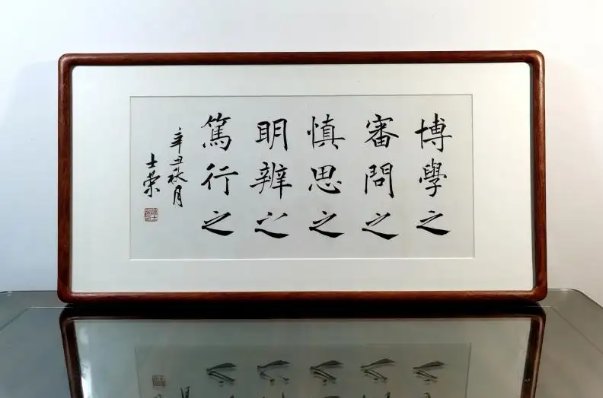 博學之
審問之
慎思之
明辨之
篤行之
辛丑秋月
士榮